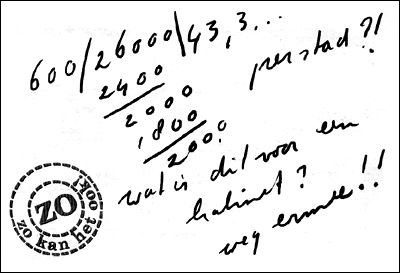 600/26000\43,3...
2400
2000
1800
2000
perstad?!
wat is dit voor een
kabinet?
weg ermee!!
ZO
zo kan het ook!